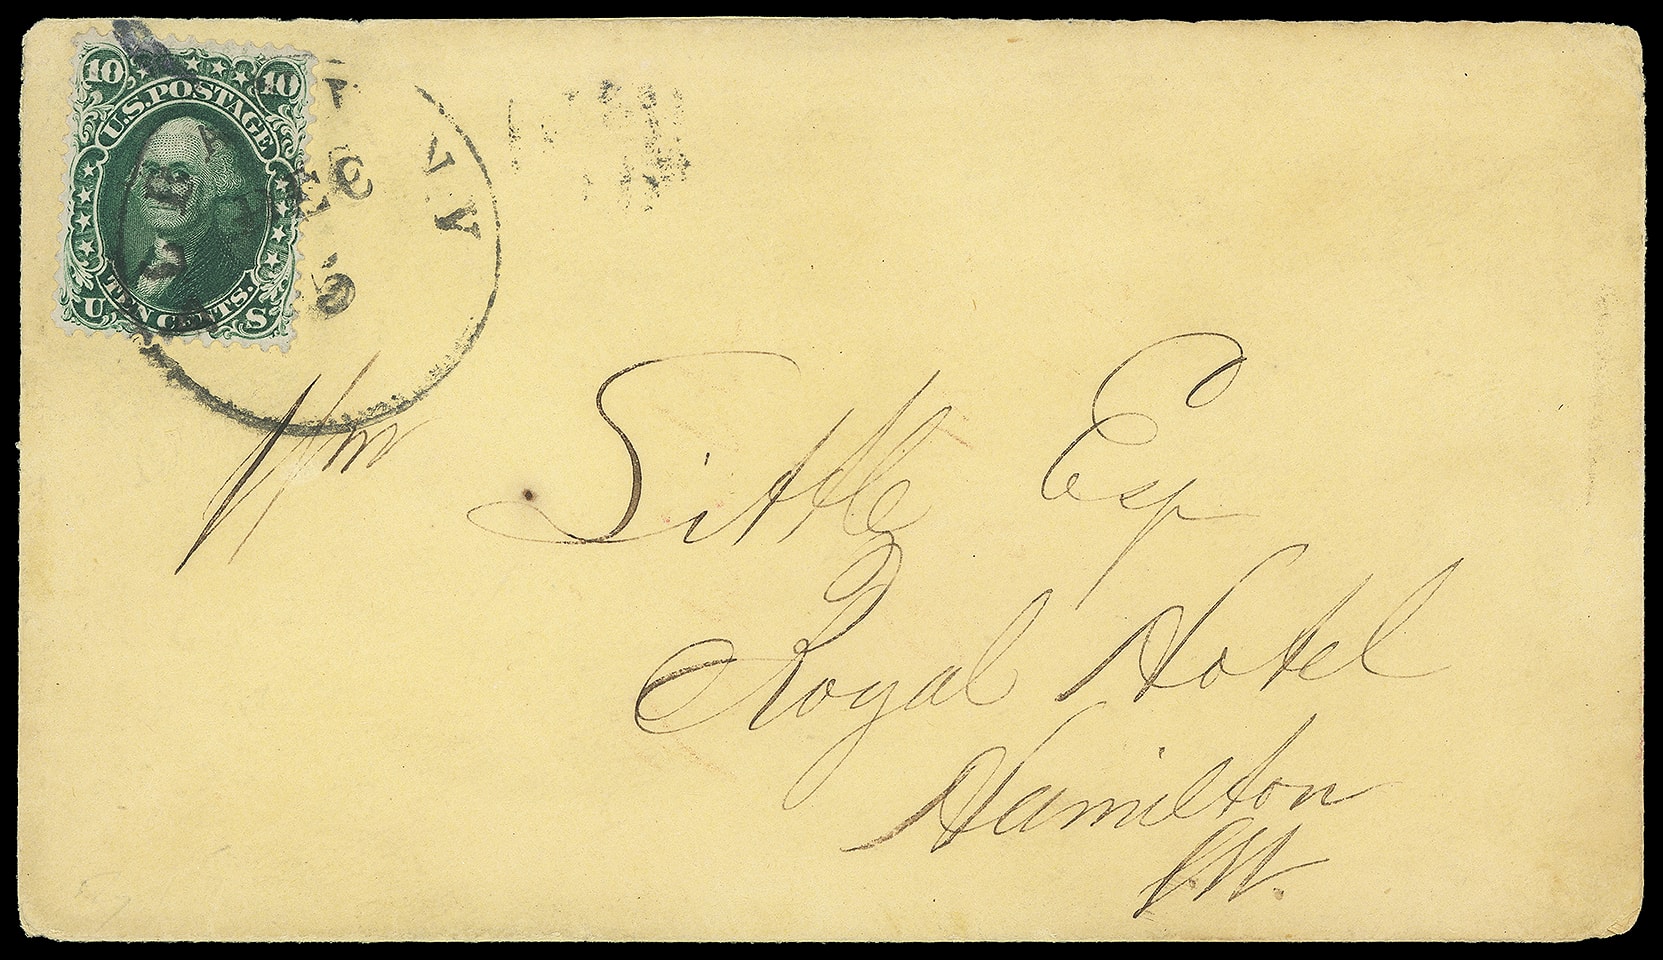 10 10
U.S. POSTAGE
TEN CENTS.
U S
DEC
Wm Little Esq
Royal Hotel
Hamilton
C.W.